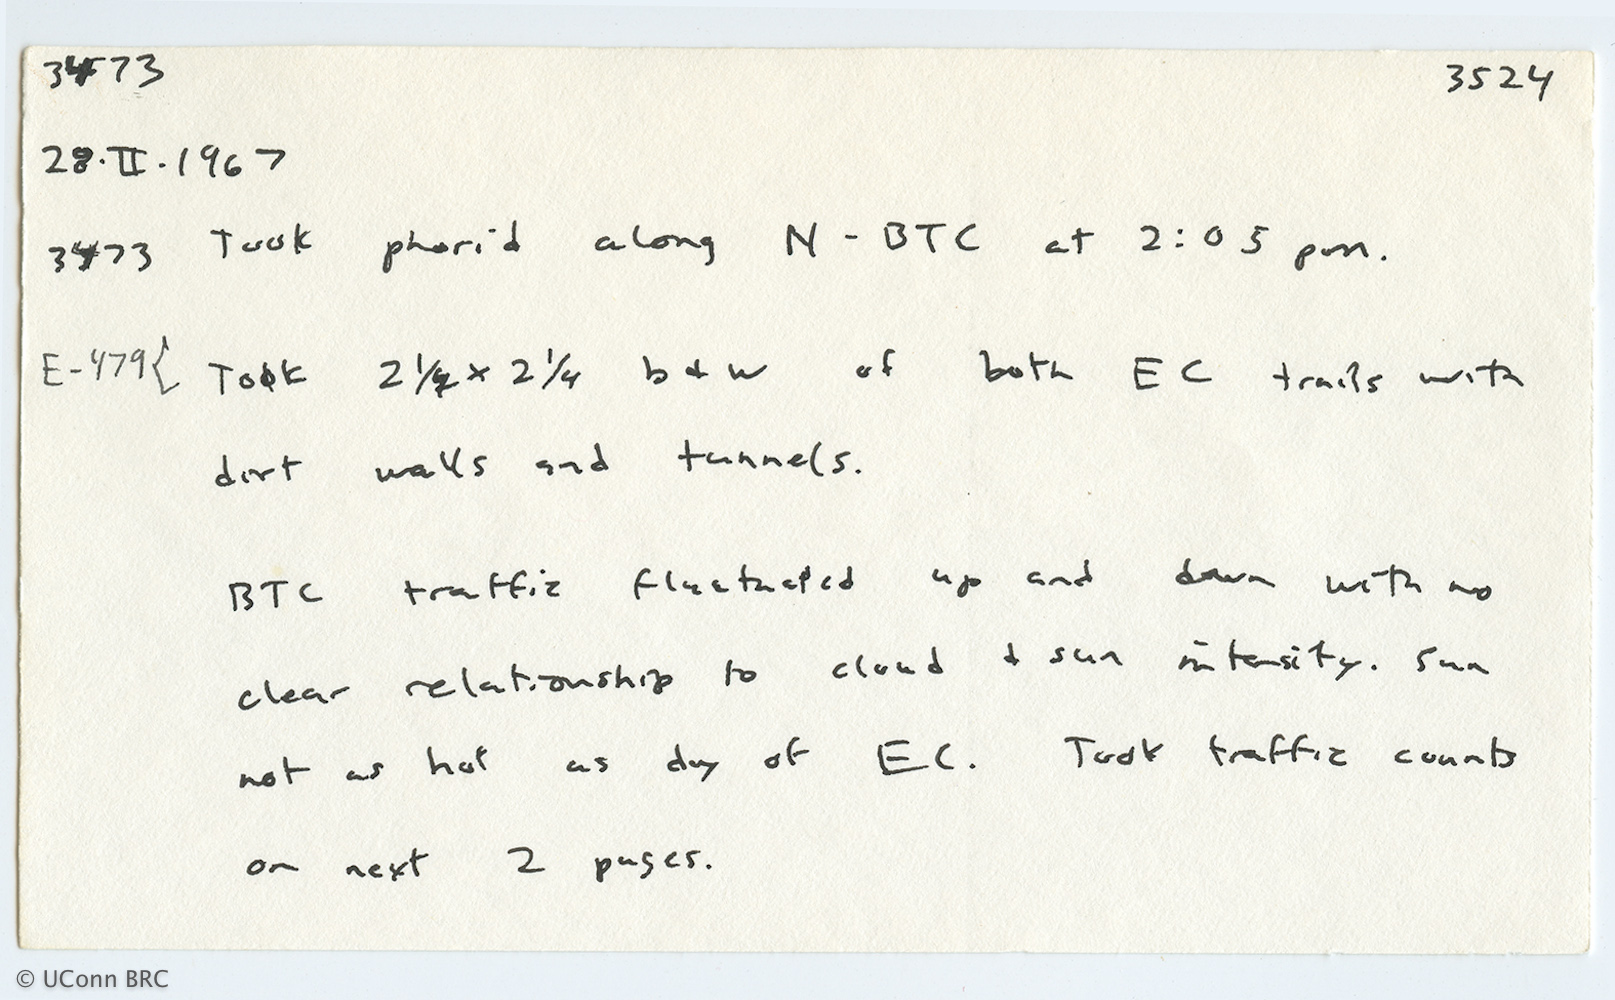 3473 3524
28.II.1967
3473 Took phorid along N-BTC at 2:05 pm.
E-479{ Took 2 1/4 x 2 1/4 b & w of both EC trails with
dirt walls and tunnels.
BTC traffic fluctuated up and down with no
clear relationship to cloud & sun intensity. Sun
not as hot as day of EC. Took traffic counts
on next 2 pages.
© UConn BRC